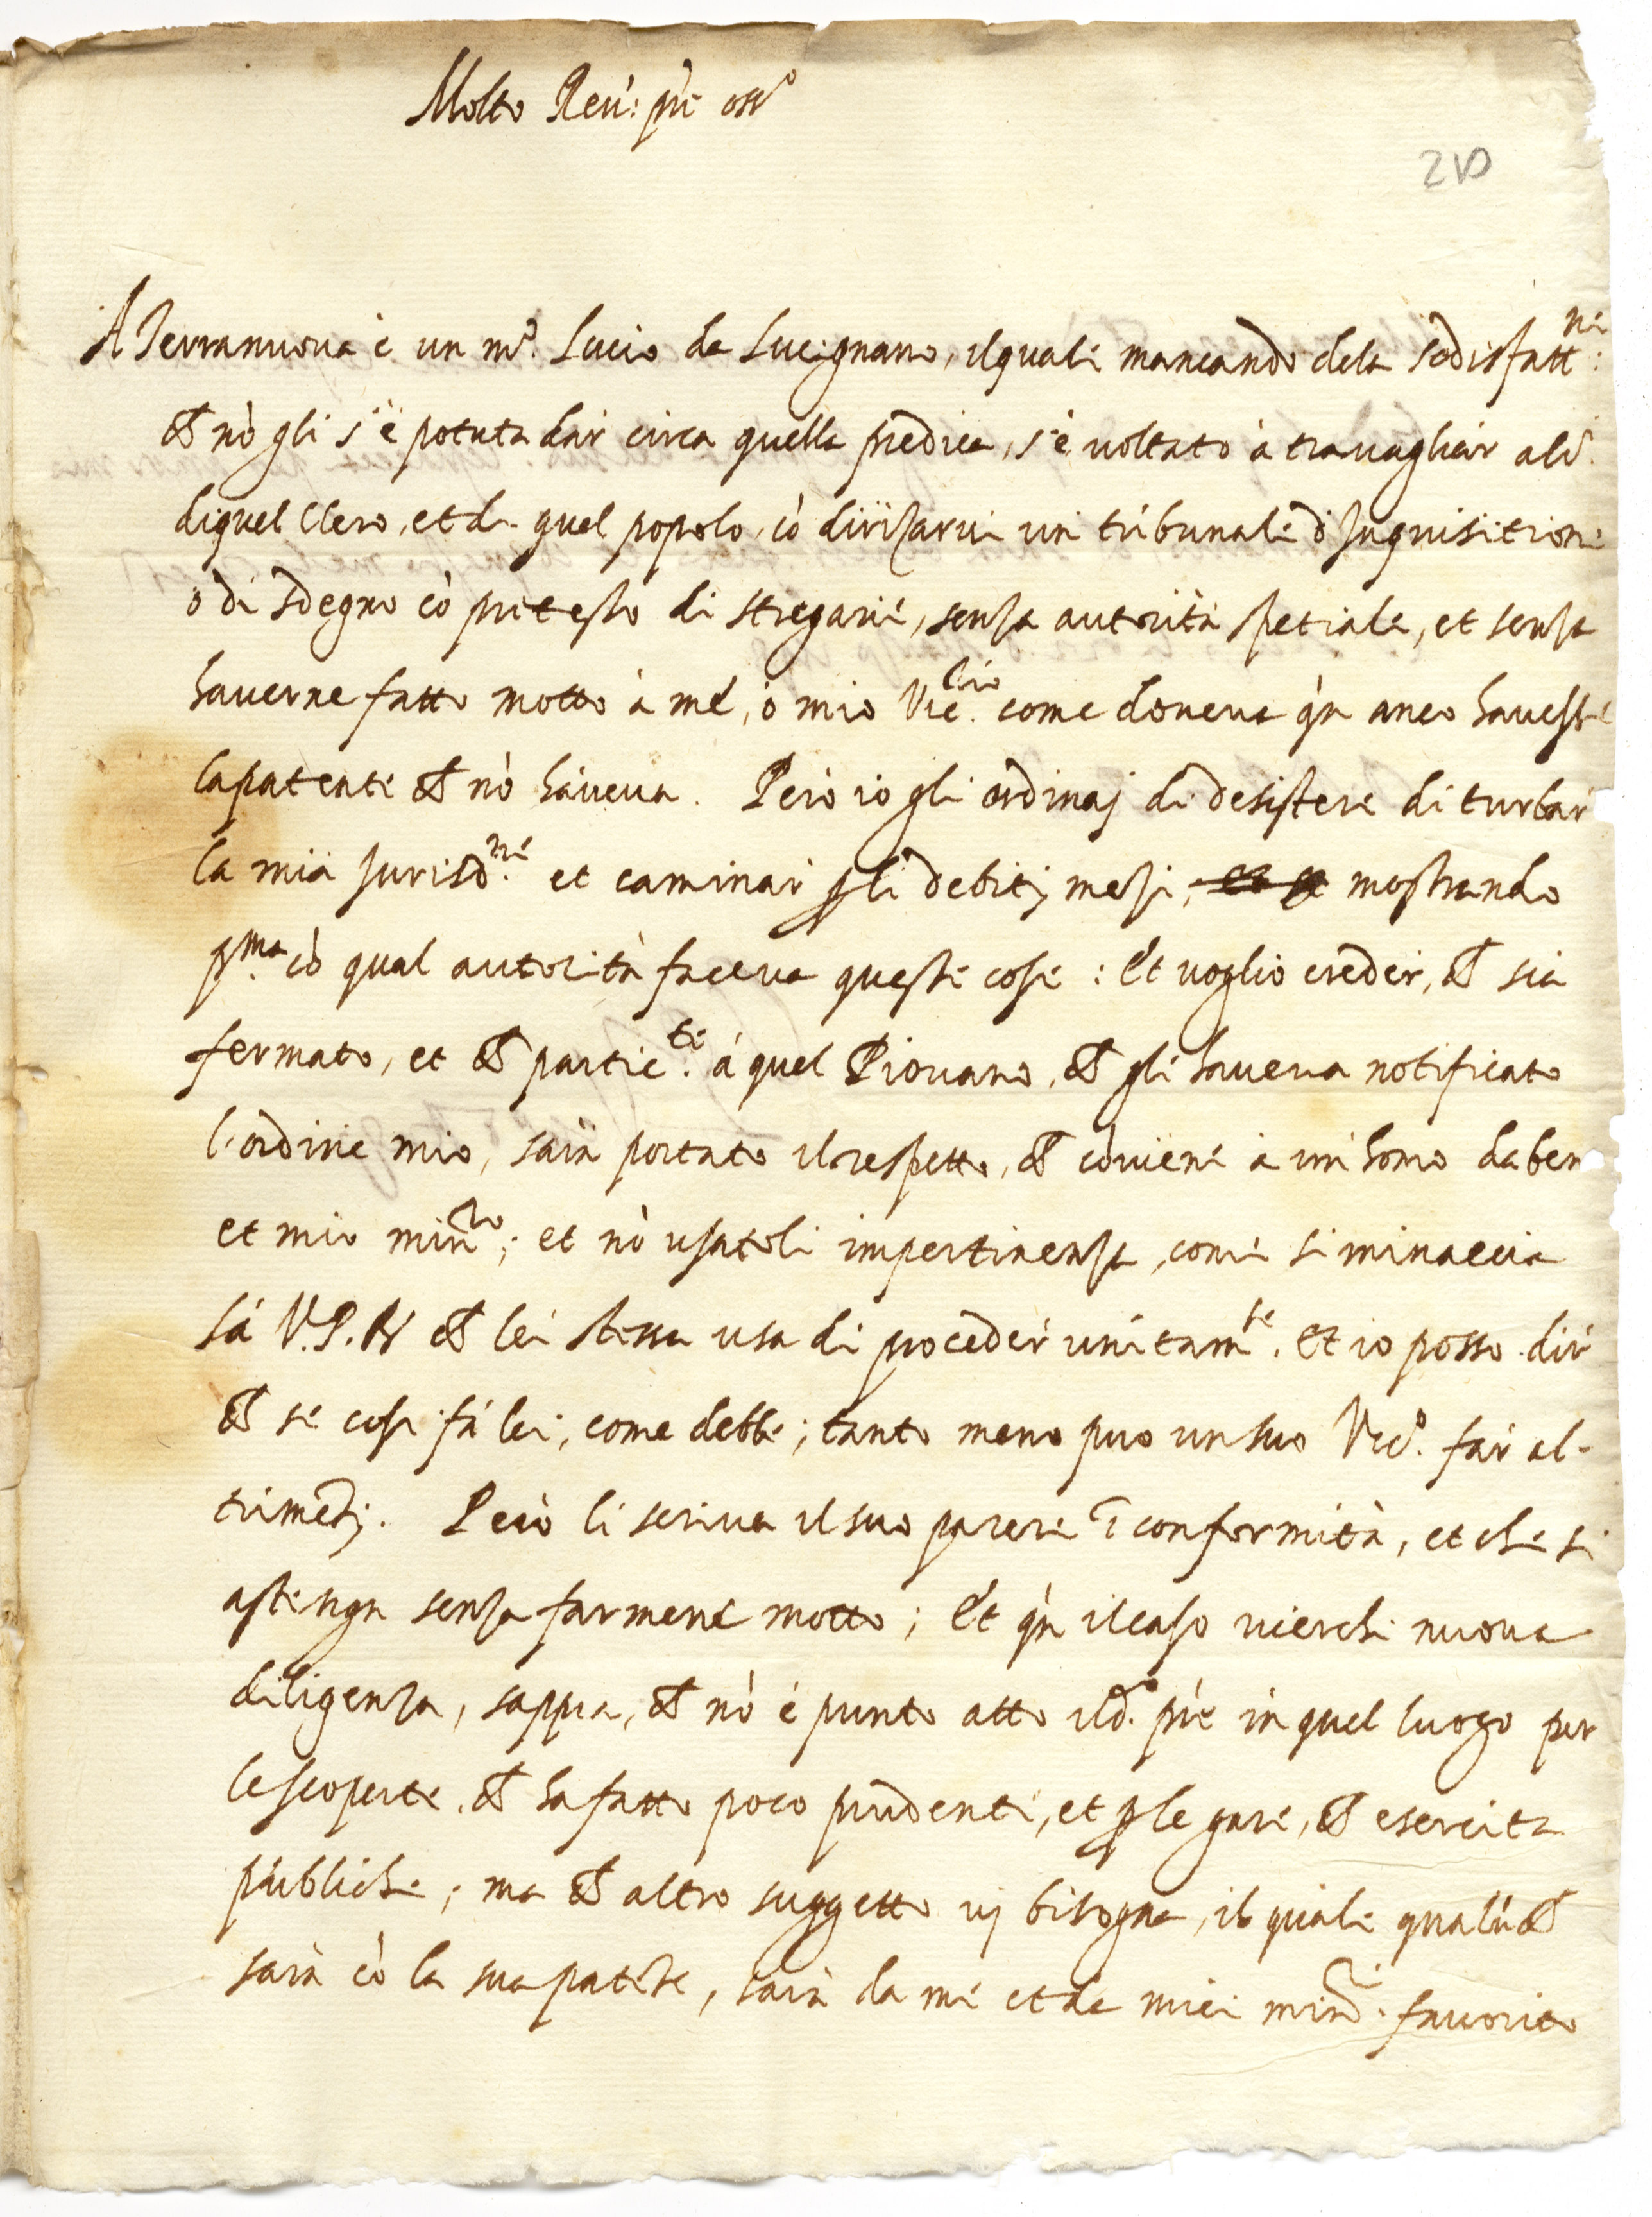 Molto Reu: pre oss.o
210
A Terranuoua è un m.o Lucio da Lucignano, ilquale mancando dela sodisfatt.ne:
che nò gli s'è potuta dar circa quella predica, s'è uoltato à trauagliar alc.i
diquel Clero, et di quel popolo, cò dirizarui un tribunale d'Inquisitione
ò di sdegno cò pretesto di stregarie, senza autorità spetiale, et senza
hauerne fatto motto à me, ò mio Vic.rio come doueua q.n anco hauesse
lapatente che nò haueua. Però io gli ordinaj di desistere di turbar
la mia Jurisd.ne et caminar p li debitj mezi, mostrando
p.ma cò qual autorità faceua queste cose: Et uoglio creder, che sia
fermato, et che partic.te à quel Piouano, che gli haueua notificato
l'ordine mio, sarà portato ilrespetto, che cóuiene à un homo daben
et mio min.ro; et nò usatoli impertinenza, come si minaccia
Sà V.P.R che lei stessa usa di proceder unitam.te. Et io posso dir
che se cosi fà lei, come debbe; tanto meno puo unsuo Vic.o far al-
trimētj. Però li scriua ilsuo parere ī conformità, et che si
astenga senza farmene motto; Et q.n ilcaso ricerchi nuoua
diligenza, sappia, che nò è punto atto ild.o pre in quel luogo per
lescoperte, che hafatto poco prudenti, et p le gare, che esercita
publiche; ma che altro suggetto uj bisogna, il quale qualū che
sarà cò la sua patēte, sarà da me et da miei min.ri fauorito